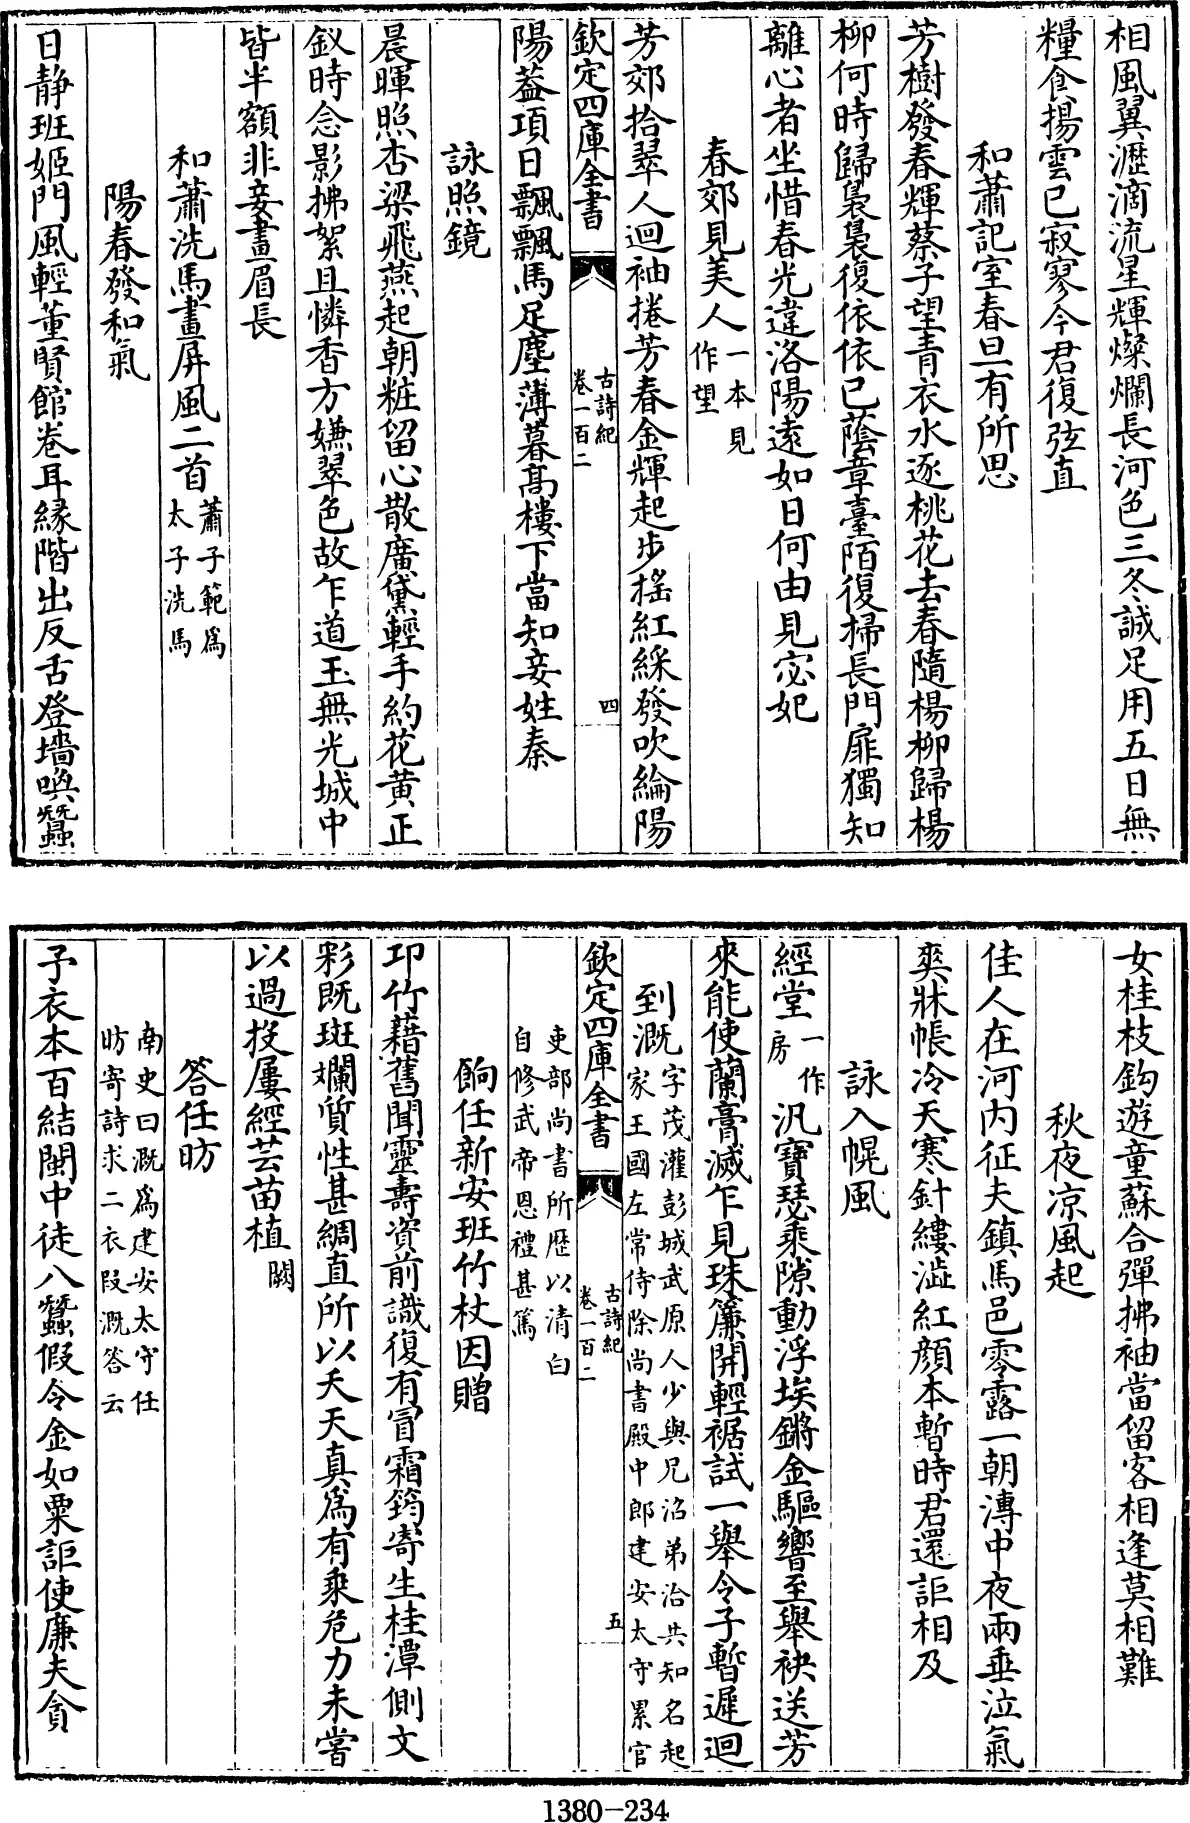 相風翼瀝滴流星輝燦爛長河色三冬誠足用五日無
糧食揚雲已寂寥今君復弦直
和蕭記室春旦有所思
芳樹發春輝蔡子望青衣水逐桃花去春隨楊柳歸楊
柳何時歸裊裊復依依已蔭章臺陌復掃長門扉獨知
離心者坐惜春光違洛陽遠如日何由見宓妃
春郊見美人一本見作望
芳郊拾翠人迴袖捲芳春金輝起步搖紅綵發吹綸陽
欽定四庫全書 古詩紀 卷一百二 四
陽蓋頂日飄飄馬足塵薄暮髙樓下當知妾姓秦
詠照鏡
晨暉照杏梁飛燕起朝粧留心散廣黛輕手約花黄正
釵時念影拂絮且憐香方嫌翠色故乍道玉無光城中
皆半額非妾畫眉長
和蕭洗馬畫屏風二首蕭子範爲太子洗馬
陽春發和氣
日静班姬門風輕董賢館卷耳縁階出反舌登墻喚蠶
女桂枝鈎遊童蘇合彈拂袖當留客相逢莫相難
秋夜凉風起
佳人在河内征夫鎮馬邑零露一朝漙中夜兩垂泣氣
爽牀帳冷天寒針縷澁紅顔本暫時君還詎相及
詠入幌風
經堂一作房汎寶瑟乘隙動浮埃鏘金驅響至舉袂送芳
來能使蘭膏滅乍見珠簾開輕裾試一舉令子暫遲迴
到溉字茂灌彭城武原人少與兄沼弟洽共知名起家王國左常侍除尚書殿中郎建安太守累官
欽定四庫全書 古詩紀 卷一百二 五
吏部尚書所歴以清白自修武帝恩禮甚篤
餉任新安班竹杖因贈
卭竹藉舊聞靈壽資前識復有冒霜筠寄生桂潭側文
彩既斑斕質性甚綢直所以夭天真爲有乘危力未嘗
以過投屢經芸苗植闕
答任昉
南史曰溉爲建安太守任昉寄詩求二衣段溉答云
子衣本百結閩中徒八蠶假令金如粟詎使廉夫貪
1380-234